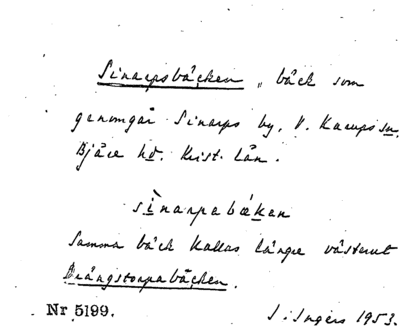 Sinarpsbäcken, bäck som
genomgår Sinarps by, V. Karups sn.
Bjäre hd. Krist. län.
sìnarpabækan
Samma bäck kallas längre västerut
Drängstorpabäcken.
Nr 5199.
I. Ingers 1953.